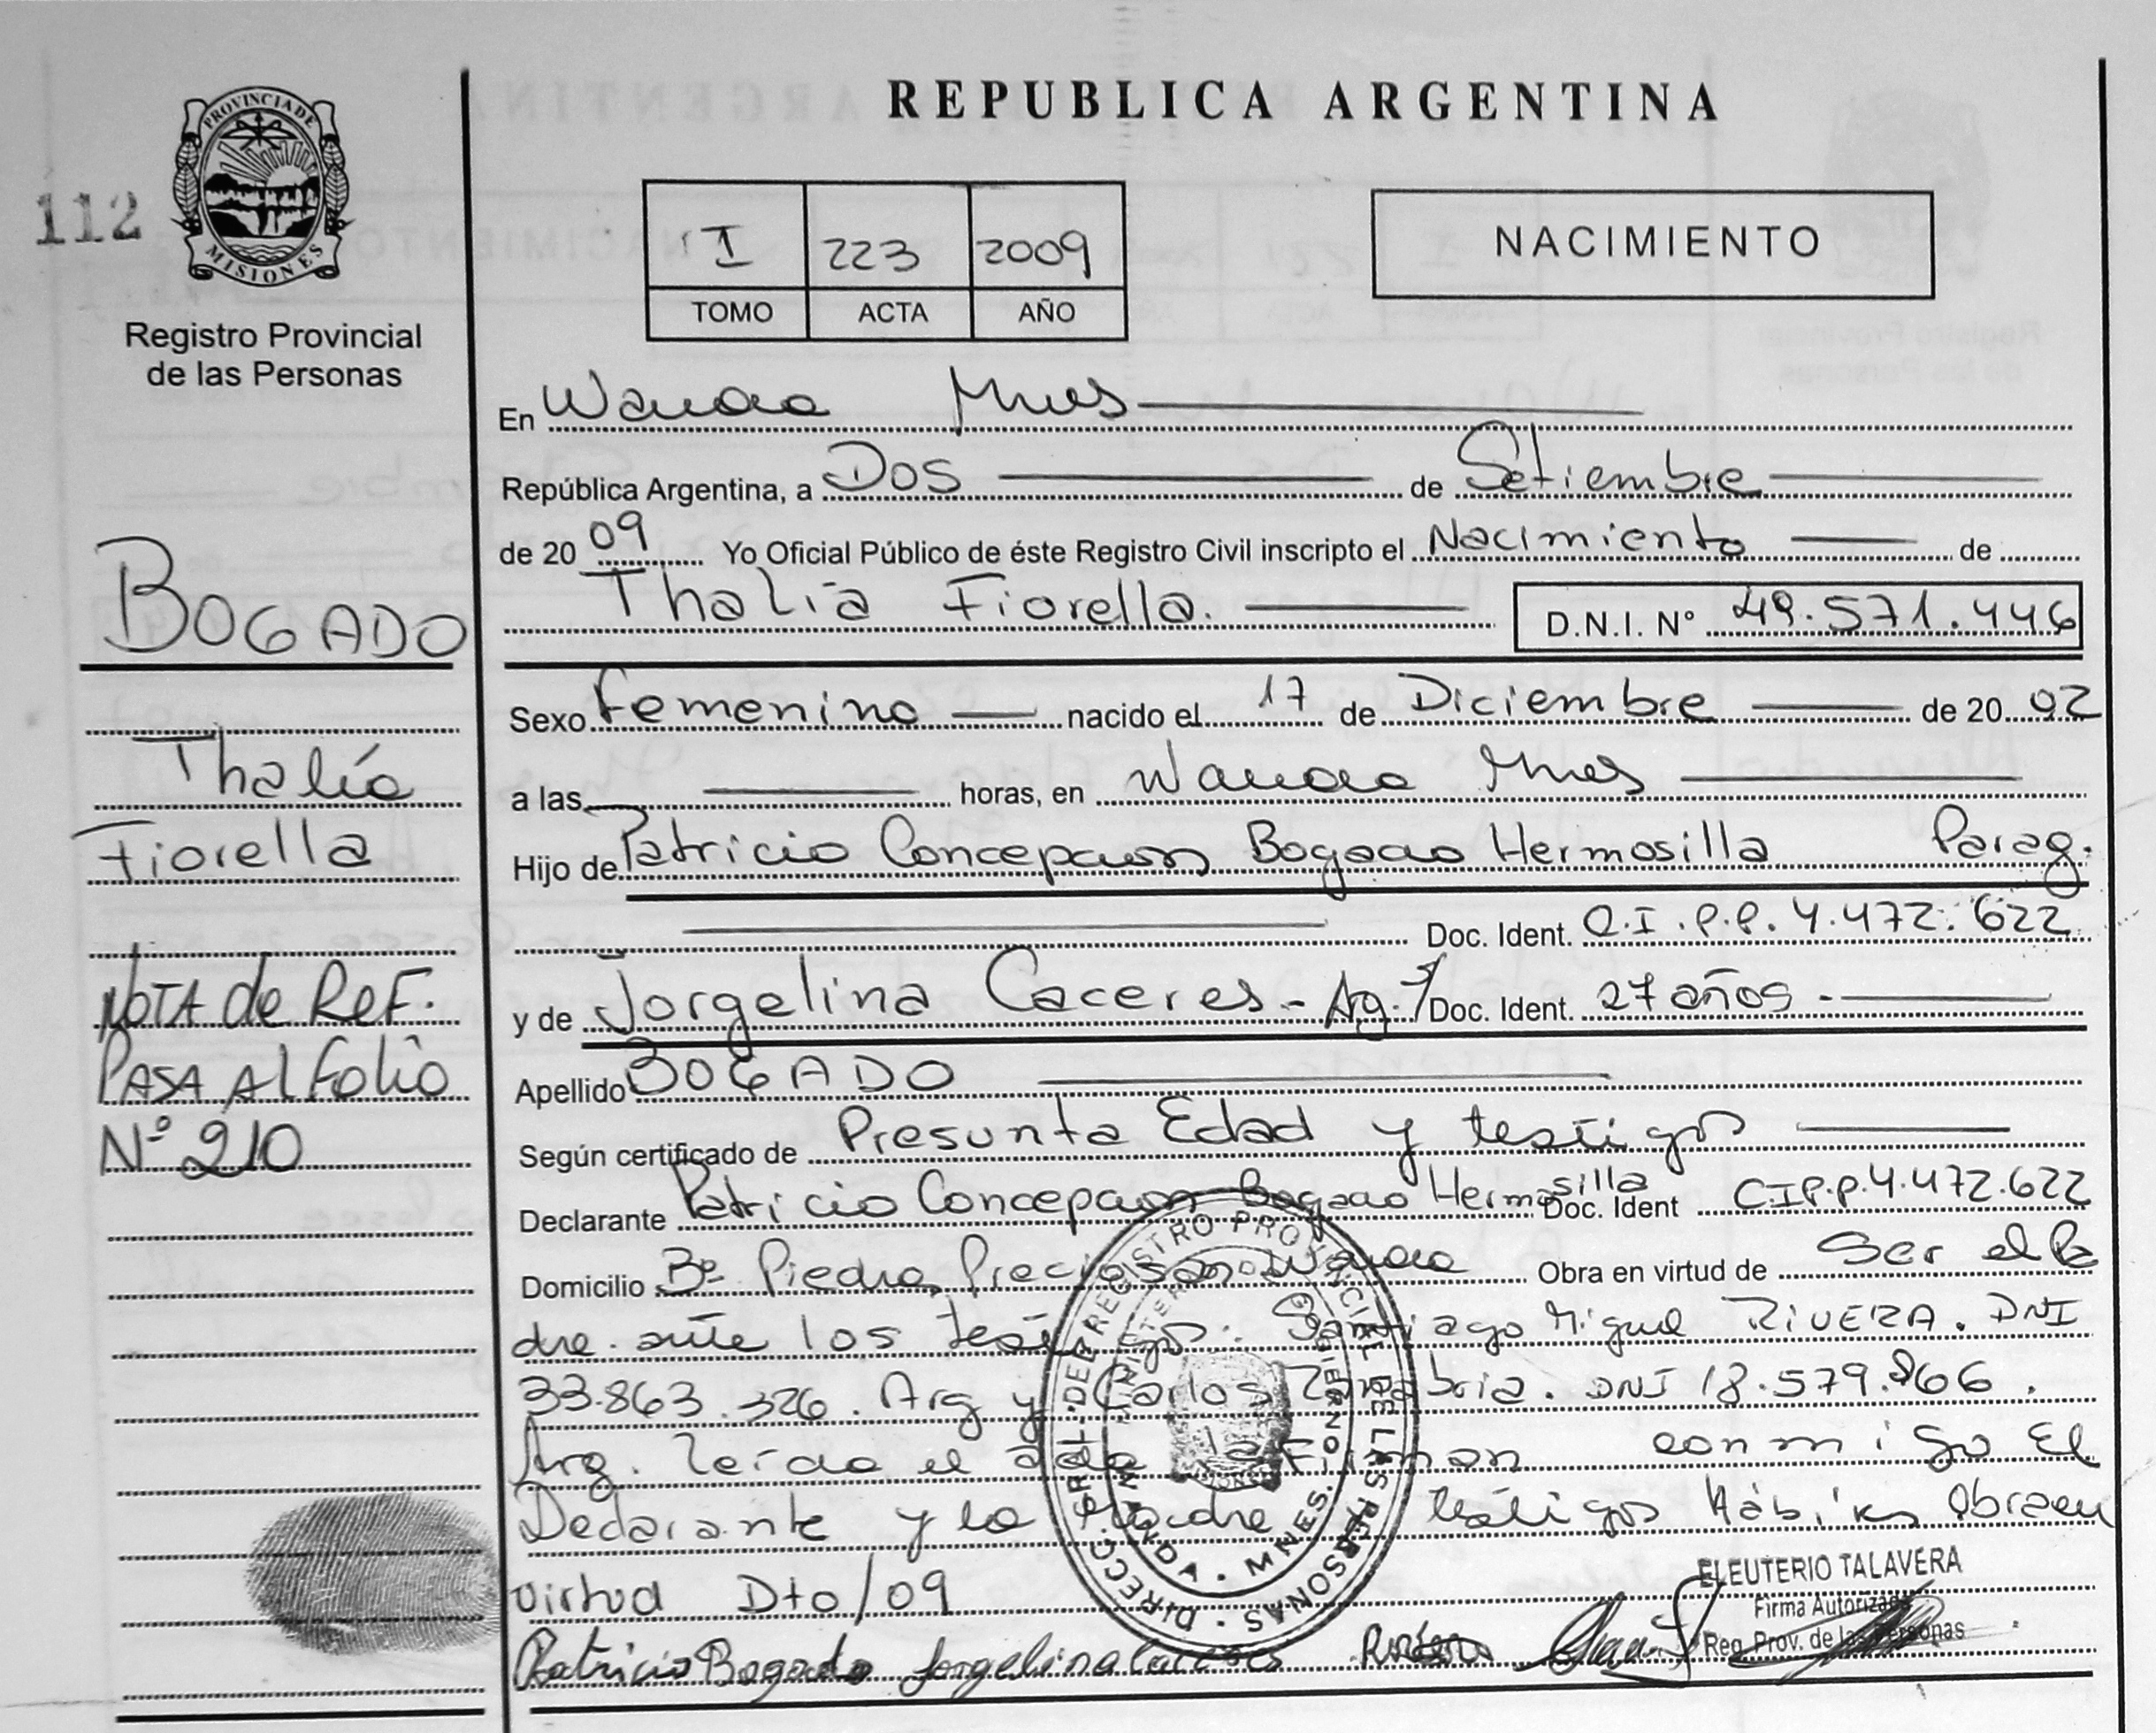 REPUBLICA ARGENTINA
PROVINCIA DE
MISIONES
112
Registro Provincial
de las Personas
I 223 2009
TOMO ACTA AÑO
NACIMIENTO
En Wanda Mnes
República Argentina, a Dos de Setiembre
de 2009 Yo Oficial Público de éste Registro Civil inscripto el Nacimiento de
Thalía Fiorella. D.N.I. Nº 49.571.446
BOGADO
Thalía
Fiorella
NOTA de REF.
PASA Al Folio
Nº 210
Sexo Femenino nacido el 17 de Diciembre de 2002
a las horas, en Wanda Mnes
Hijo de Patricio Concepcion Bogado Hermosilla Parag.
Doc. Ident. C.I.P.P. 4.472.622
y de Jorgelina Caceres - Arg. Doc. Ident. 27 años -
Apellido BOGADO
Según certificado de Presunta Edad y testigos
Declarante Patricio Concepcion Bogado Hermosilla Doc. Ident C.I.P.P. 4.472.622
Domicilio Bº Piedras Preciosas Wanda Obra en virtud de Ser el Pa
dre ante los testigos: Santiago Miguel RIVERA. DNI
33.863.326. Arg y Carlos DNI 18.579.866.
Arg. Leída el acta la Firman conmigo El
Declarante y la Madre testigos Hábiles Obra en
virtud Dto/09
DIRECC. GRAL. DEL REGISTRO PROVINCIAL DE LAS PERSONAS
MINISTERIO DE GOBIERNO
WANDA - MNES.
ELEUTERIO TALAVERA
Firma Autorizada
Reg. Prov. de las Personas
Patricio Bogado Jorgelina Caceres